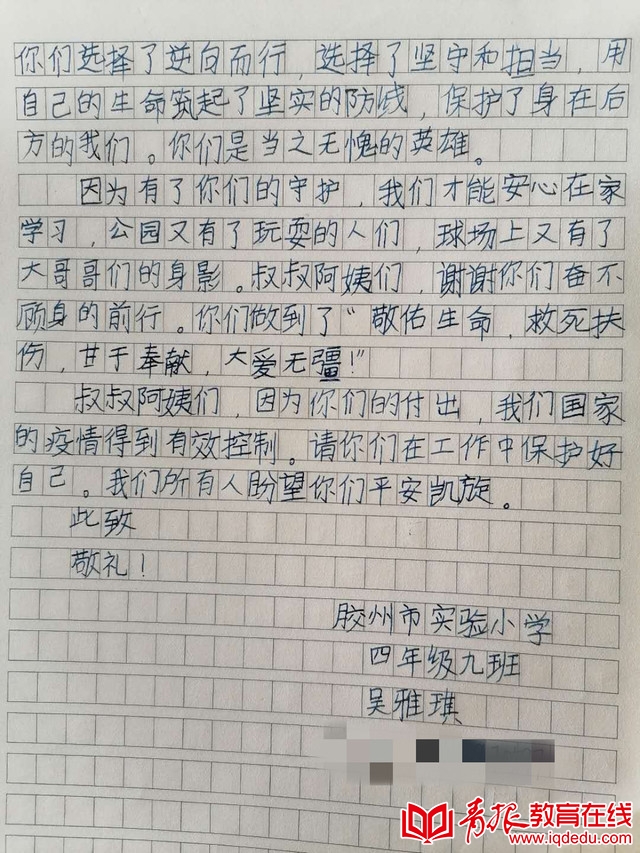 你们选择了逆向而行，选择了坚守和担当，用
自己的生命筑起了坚实的防线，保护了身在后
方的我们。你们是当之无愧的英雄。
因为有了你们的守护，我们才能安心在家
学习，公园又有了玩耍的人们，球场上又有了
大哥哥们的身影。叔叔阿姨们，谢谢你们奋不
顾身的前行。你们做到了“敬佑生命，救死扶
伤，甘于奉献，大爱无疆！”
叔叔阿姨们，因为你们的付出，我们国家
的疫情得到有效控制。请你们在工作中保护好
自己。我们所有人盼望你们平安凯旋。
此致
敬礼！
胶州市实验小学
四年级九班
吴雅琪
青报教育在线
www.iqdedu.com